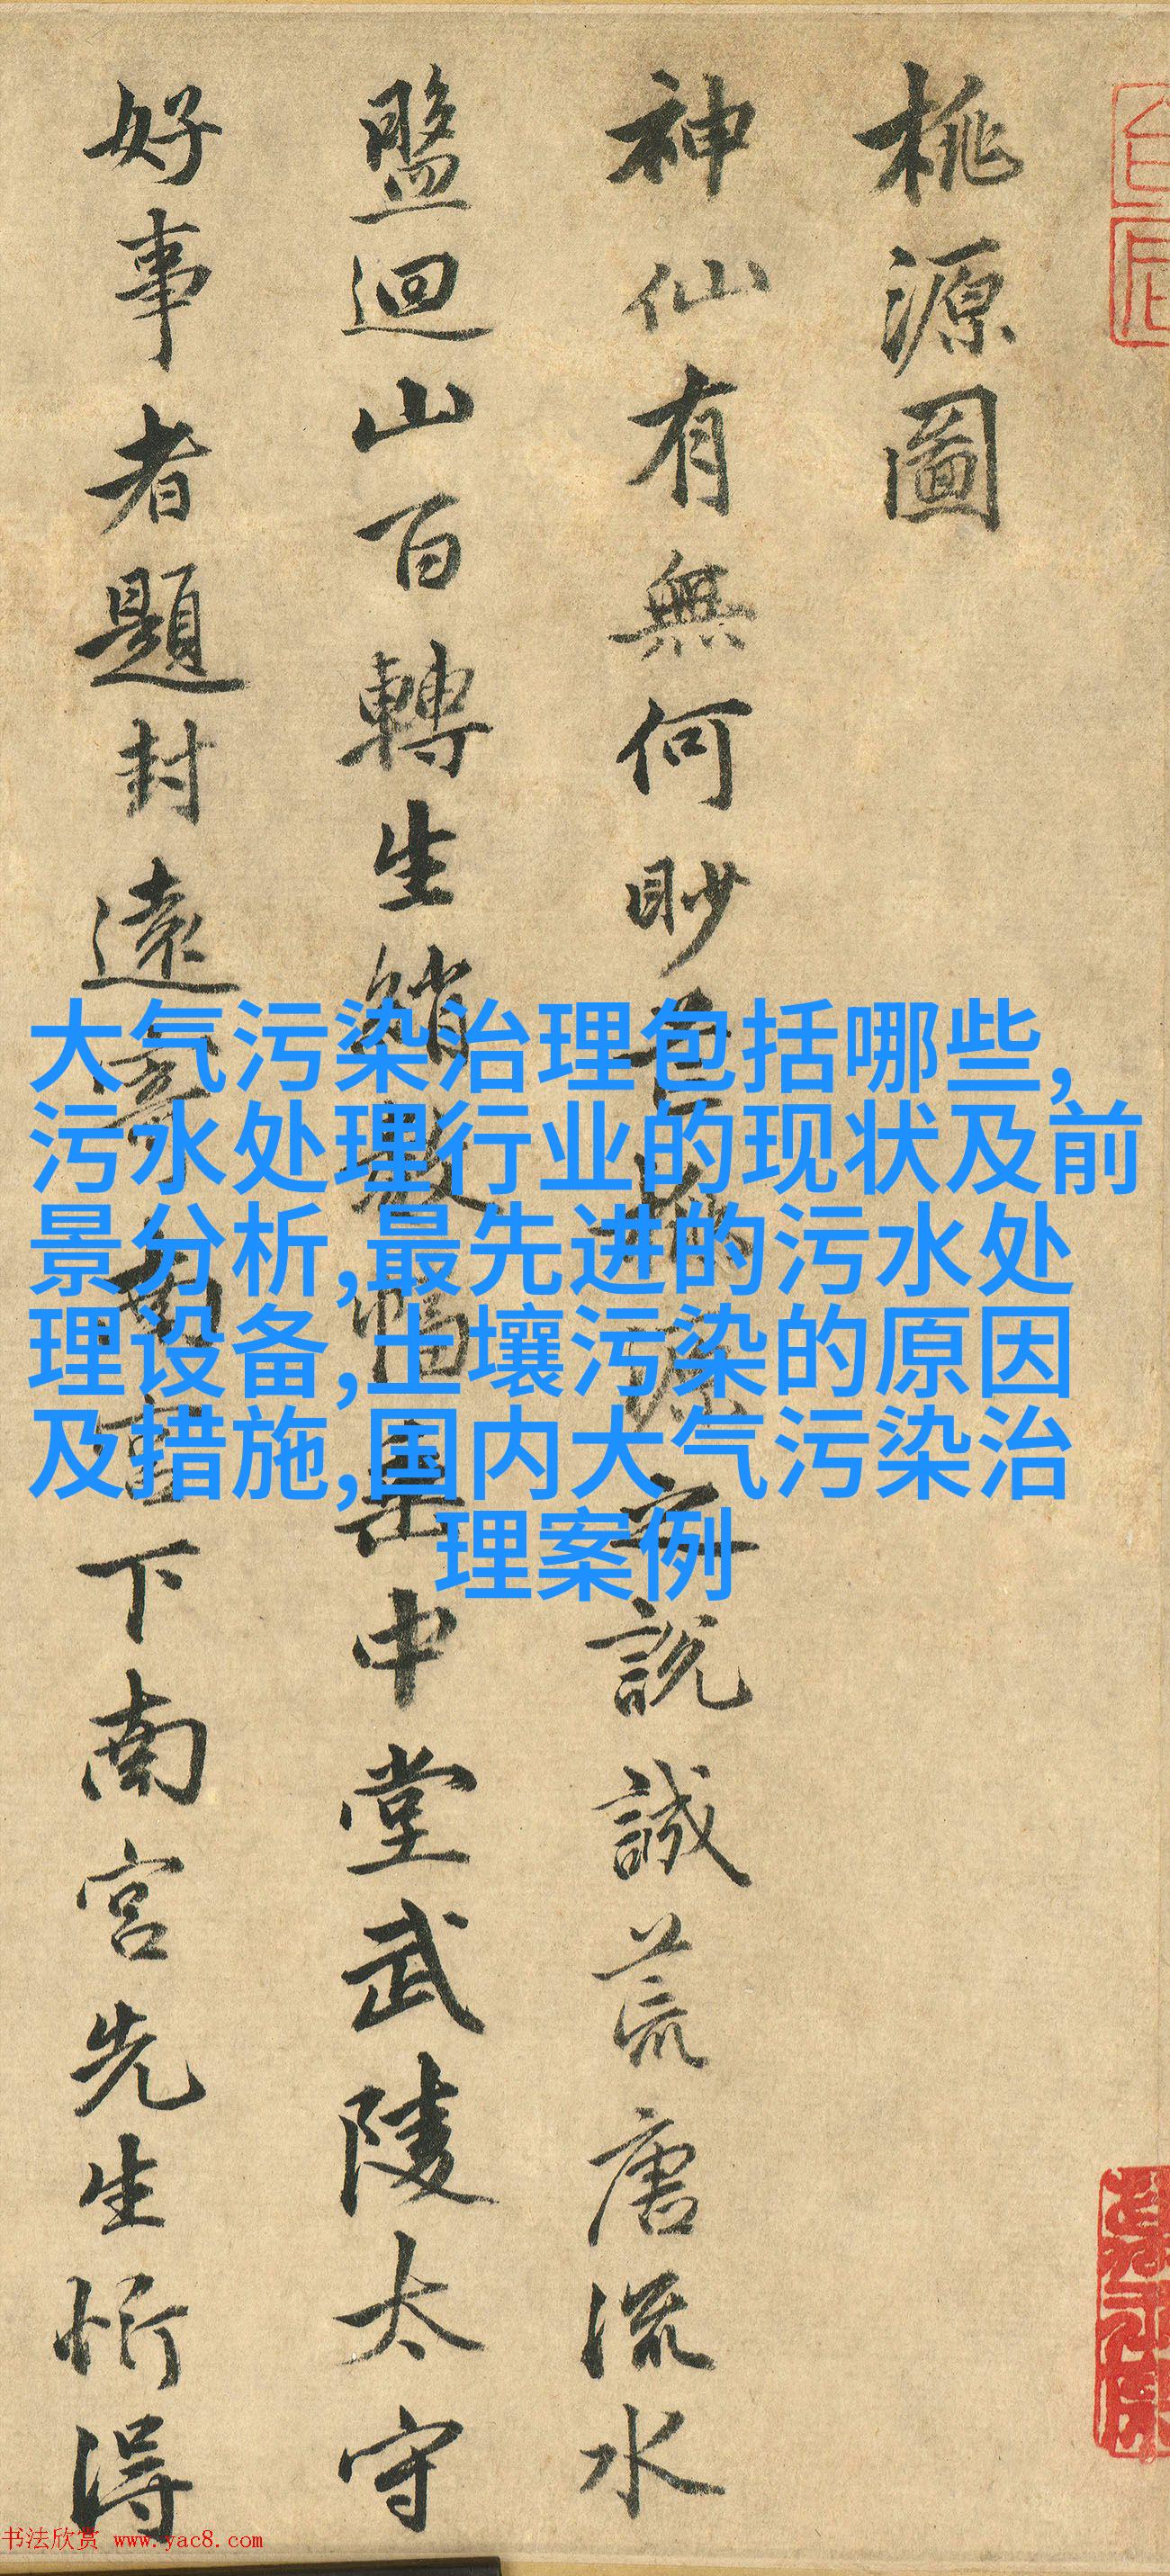 桃源圖
神仙有無何眇芒桃源之說誠荒唐流水
盤迴山百轉生綃數幅垂中堂武陵太守
好事者題封遠寄南宮下南宮先生忻得
大气污染治理包括哪些,
污水处理行业的现状及前
景分析,最先进的污水处
理设备,土壤污染的原因
及措施,国内大气污染治
理案例
书法欣赏 www.yac8.com